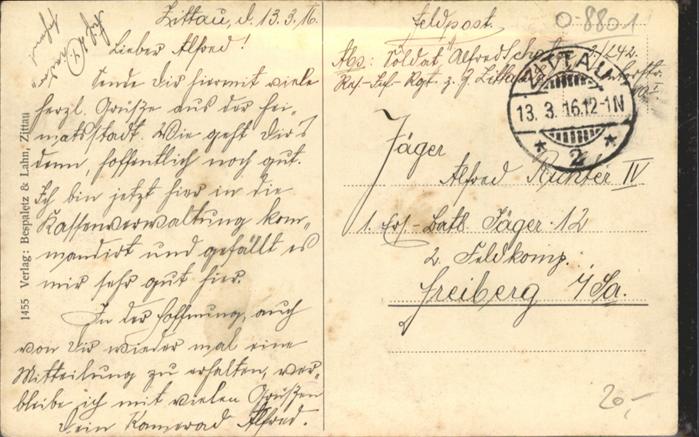 Zittau, d. 13.3.16.
Lieber Alfred!
Sende dir hiermit viele
herzl. Grüsse aus der Hei-
matsstadt. Wie geht dir's
denn, hoffentlich noch gut.
Ich bin jetzt hier in die
Kassenverwaltung kom-
mandirt und gefällt es
mir sehr gut hier.
In der Hoffnung, auch
von dir wieder mal eine
Mitteilung zu erhalten, ver-
bleibe ich mit vielen Grüßen
Dein Kamerad Alfred.
1455 Verlag: Bespaletz & Lahn, Zittau
Feldpost.
O-8801
Abs: Soldat Alfred
ZITTAU
13. 3. 16.12-1N
* 2 *
Jäger
Alfred Richter IV
1. Ers.-Batl. Jäger-12
2. Feldkomp.
Freiberg i/Sa.
20,-